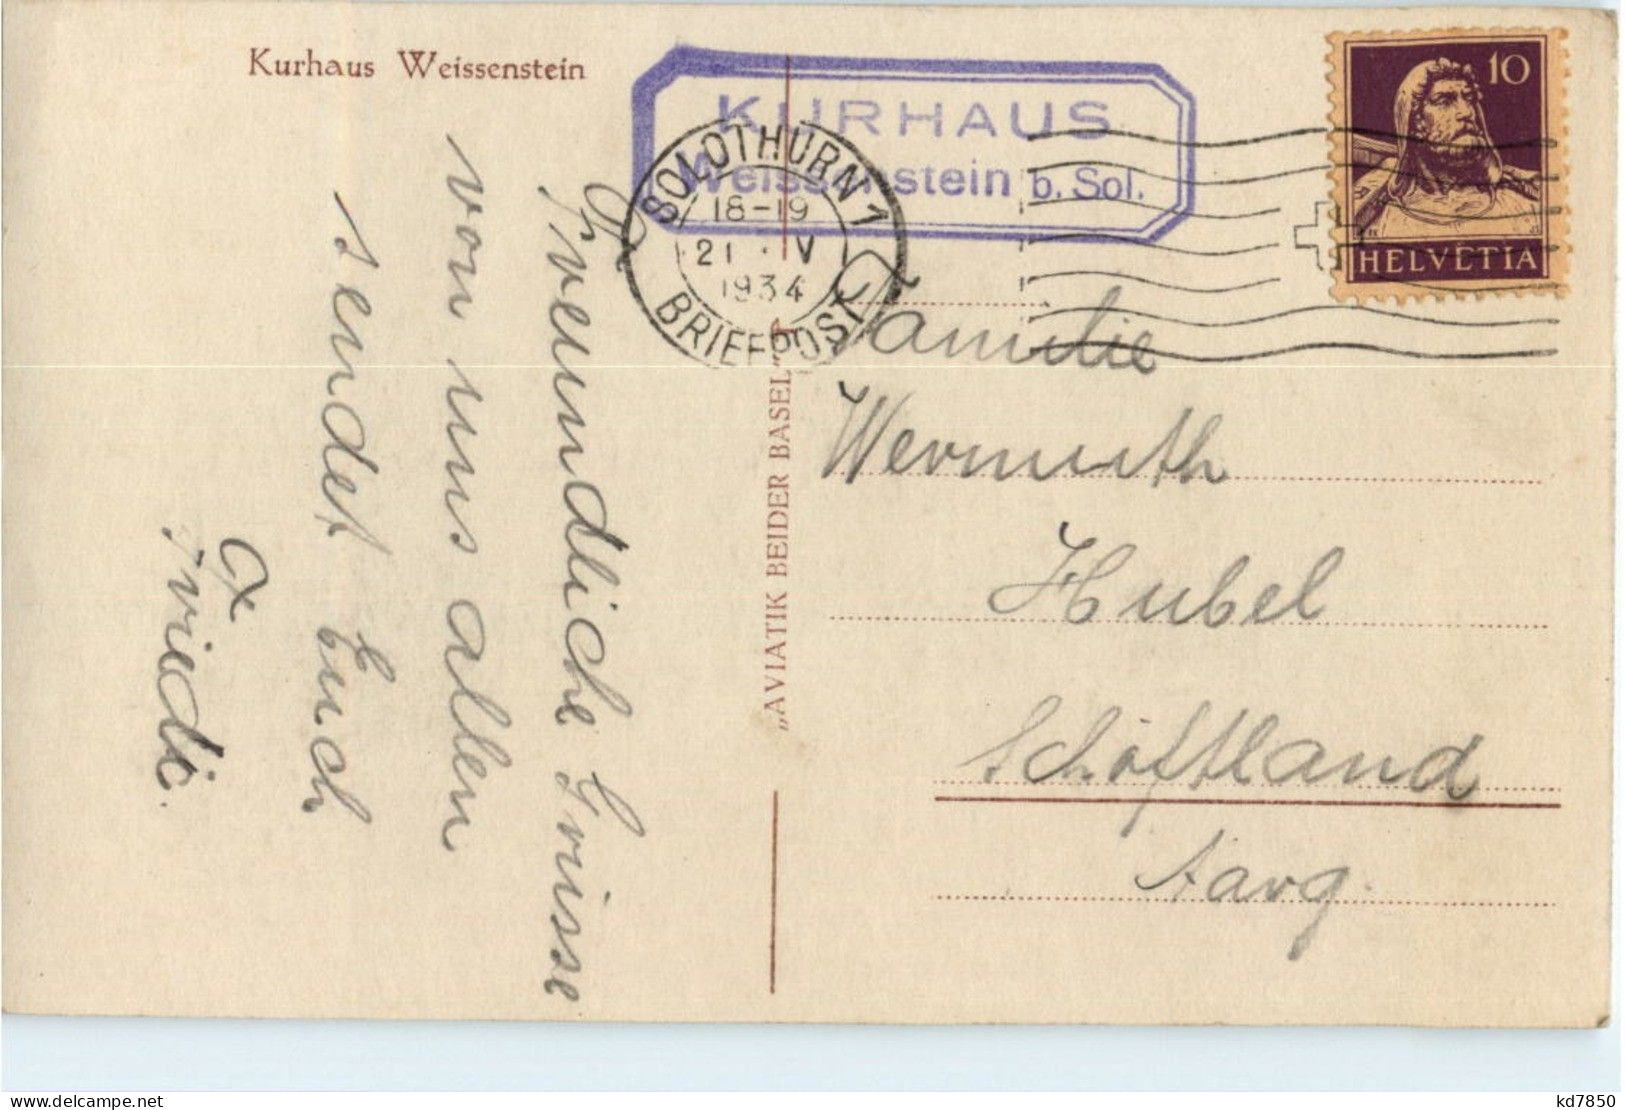 Kurhaus Weissenstein
KURHAUS
Weissenstein b. Sol.
SOLOTHURN 1
18-19
21 · V
1934
BRIEFPOST
10
HELVETIA
Freundliche Grüsse
von uns allen
sendet Euch
Friedi.
„AVIATIK BEIDER BASEL"
Familie
Wermuth
Hubel
Schöftland
Aarg.
kd7850